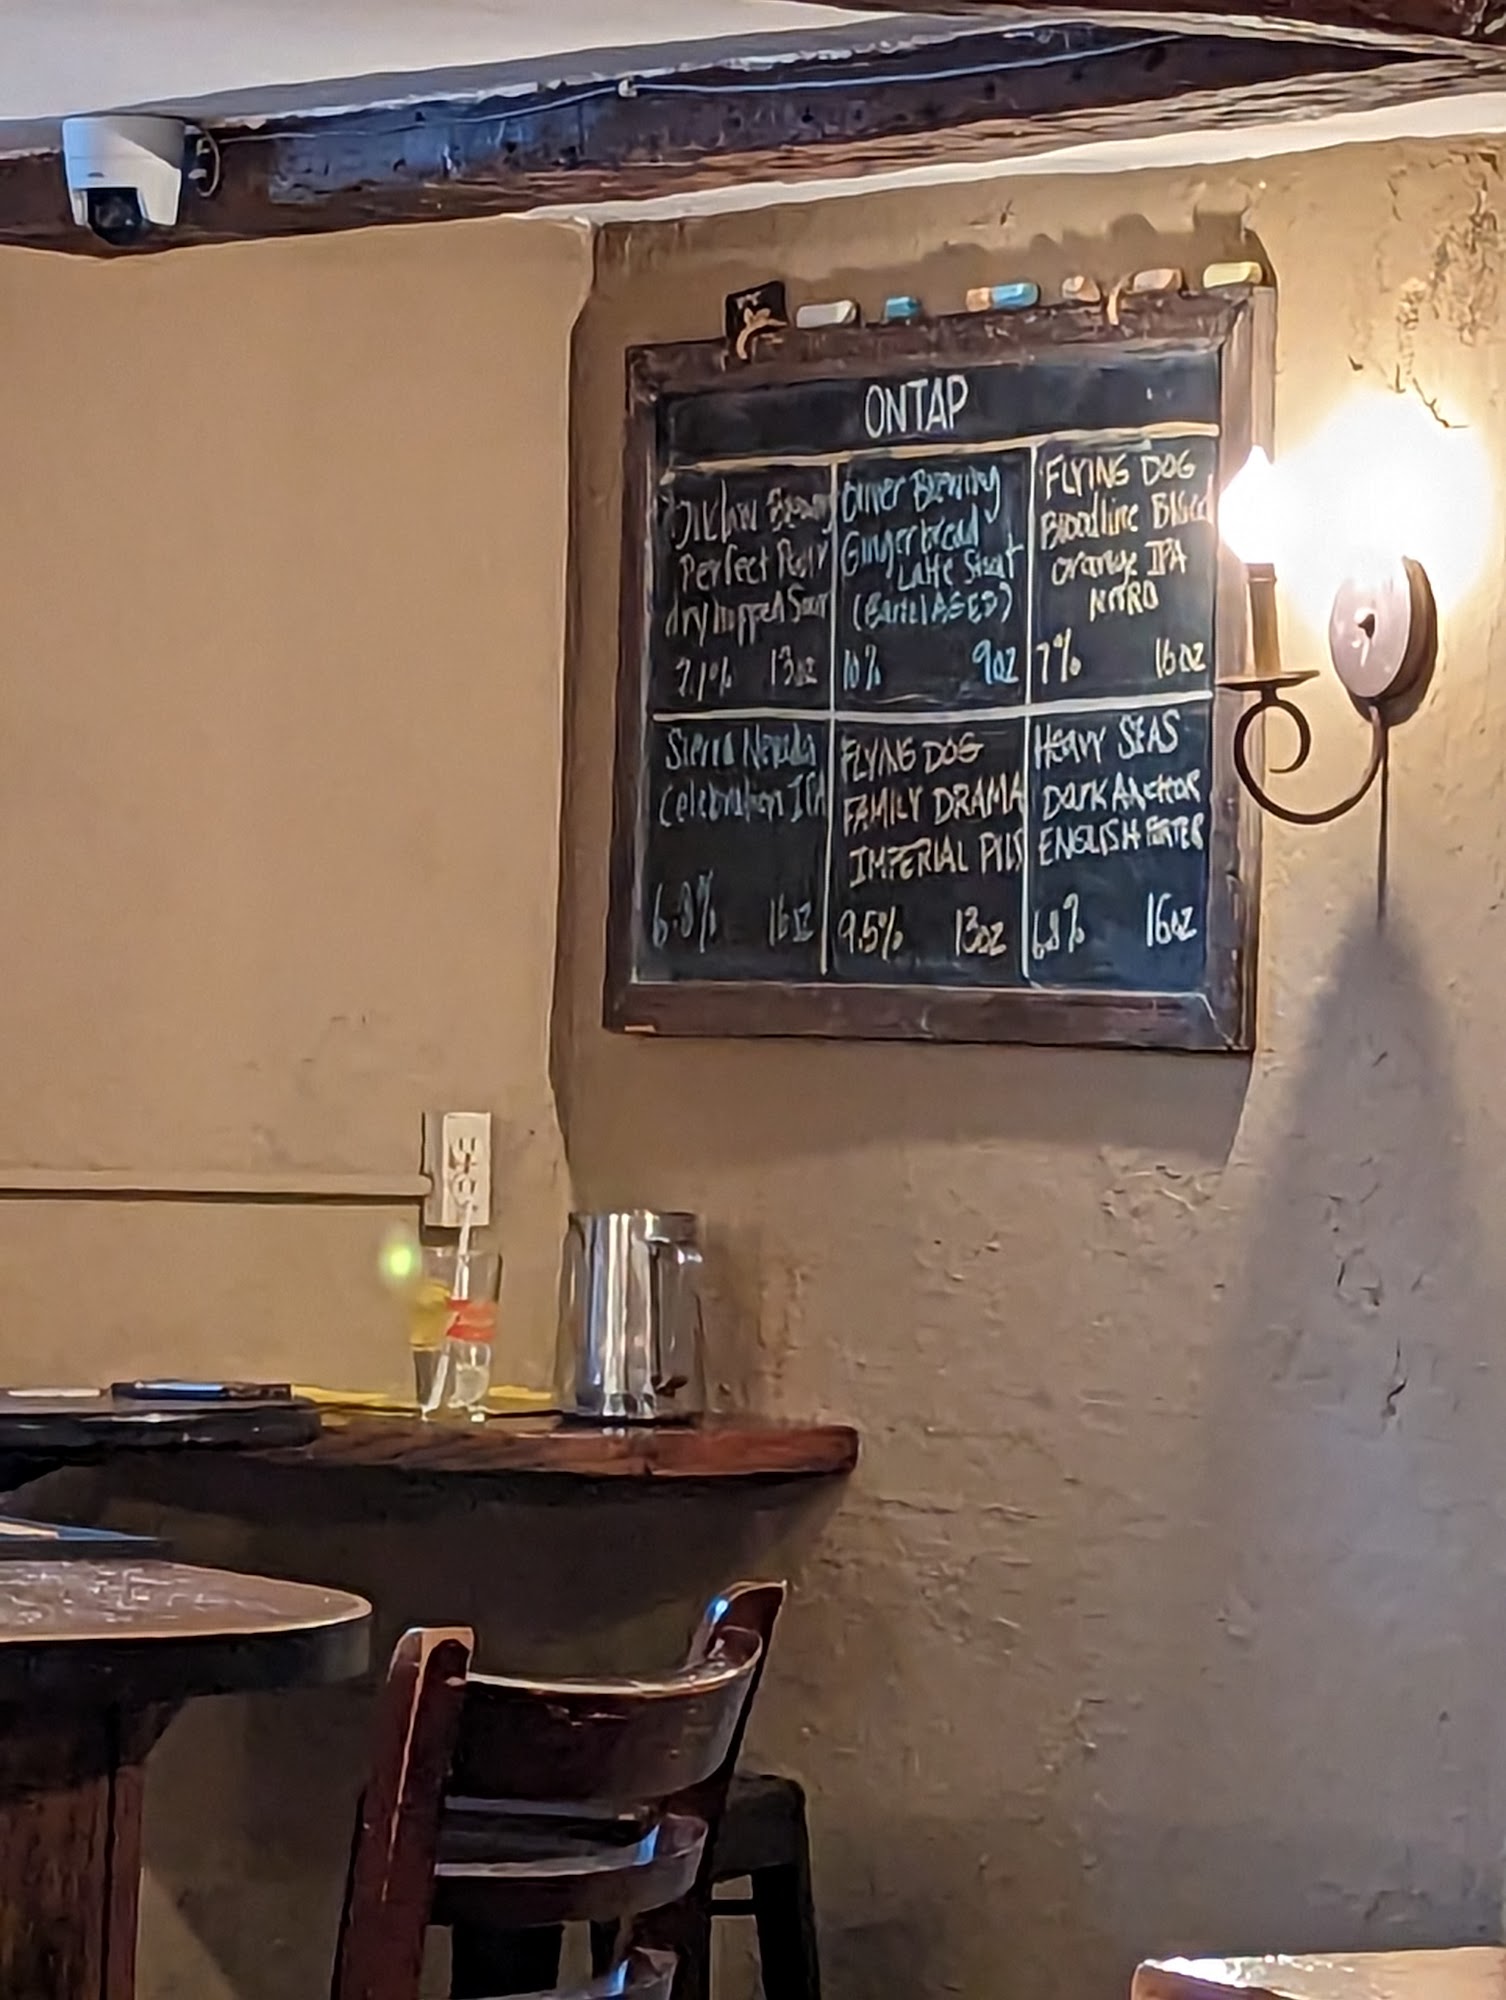 ONTAP
Perfect
dry hopped Sour
7.1% 13oz
Oliver Brewing
Gingerbread
Latte Stout
(Barrel AGED)
10% 9oz
FLYING DOG
Bloodline Blood
Orange IPA
NITRO
7% 16oz
Sierra Nevada
Celebration IPA
6.8% 16oz
FLYING DOG
FAMILY DRAMA
IMPERIAL PILS
9.5% 13oz
HEAVY SEAS
DARK ANCHOR
ENGLISH PORTER
6.8% 16oz